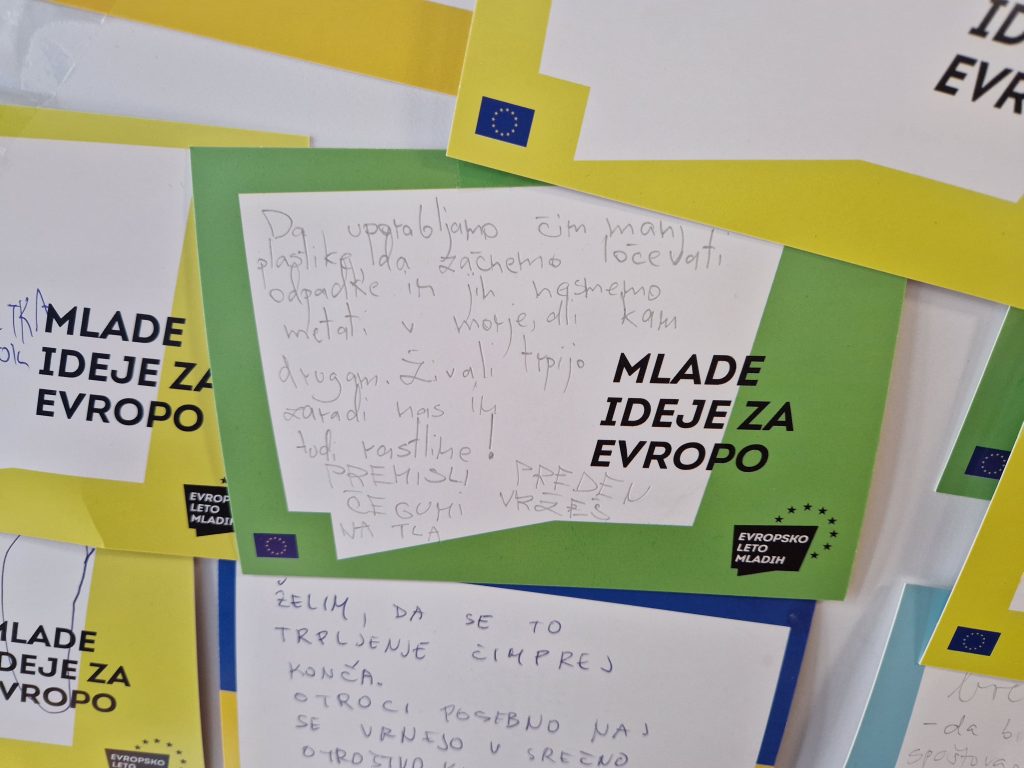 ID
EVR
Da upgrabljamo čim manj
plastike, da začnemo ločevati
odpadke in jih nasmemo
metati v morje, ali kam
druggm. Živali trpijo
zaradi nas in
todi rastline!
PREMISLI PREDEN
ČEGUMI VRŽEŠ
NA TLA
MLADE
IDEJE ZA
EVROPO
EVROPSKO
LETO
MLADIH
MLADE
IDEJE ZA
EVROPO
EVROP
LETO
MLADIH
MLADE
IDEJE ZA
EVROPO
EVROPSKO
LETO
ŽELIM, DA SE TO
TRPLJENJE ČIMPREJ
KONČA.
OTROCI POSEBNO NAJ
SE VRNEJO V SREČNO
OTROŠTVO
- da bi
spoštova